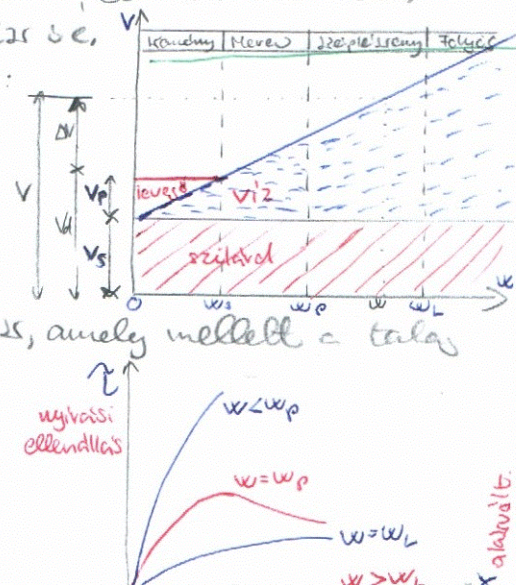 V
Kemény Merev Szépléssány Folyós
ΔV
V
Vd
Vp
levegő
víz
Vs
szilárd
0 ws wp w wL w
amely mellett a talaj
τ
nyírási
ellenállás
w<wp
w=wp
w=wL
w>wL
alakvált.